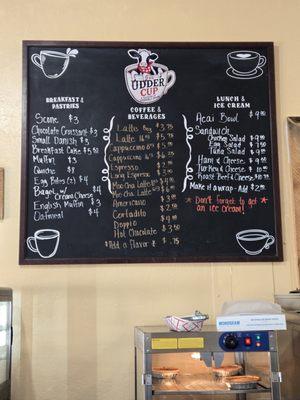 THE
UDDER
CUP
BREAKFAST &
PASTRIES
Scone $3
Chocolate Croissant $3
Small Danish $3
Breakfast Cake $4.50
Muffin $3
Quiche $8
Egg Bites (2) $4
Bagel w/ Cream Cheese $4
English Muffin $3
Oatmeal $4
COFFEE &
BEVERAGES
Latte 8oz $3.75
Latte 16oz $5
Cappuccino 8oz $3
Cappuccino 16oz
Espresso
Long Espresso
Mocha Latte 8oz
Mocha Latte 16oz
Americano $3
Cortadito
Doppio
Hot Chocolate $3.50
*Add a Flavor $.75
LUNCH &
ICE CREAM
Acai Bowl $9.00
Sandwich
Chicken Salad $9.00
Egg Salad $9.00
Tuna Salad $9.00
Ham & Cheese $9.00
Turkey & Cheese $10.00
Roast Beef & Cheese $10.00
Make it a wrap - Add $2.00
* Don't forget to get *
an ice cream!